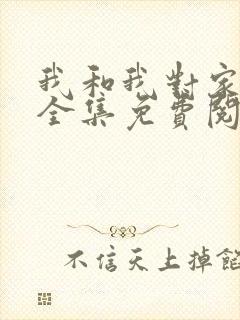 我和我對家
全集免費閱
不信天上掉餡